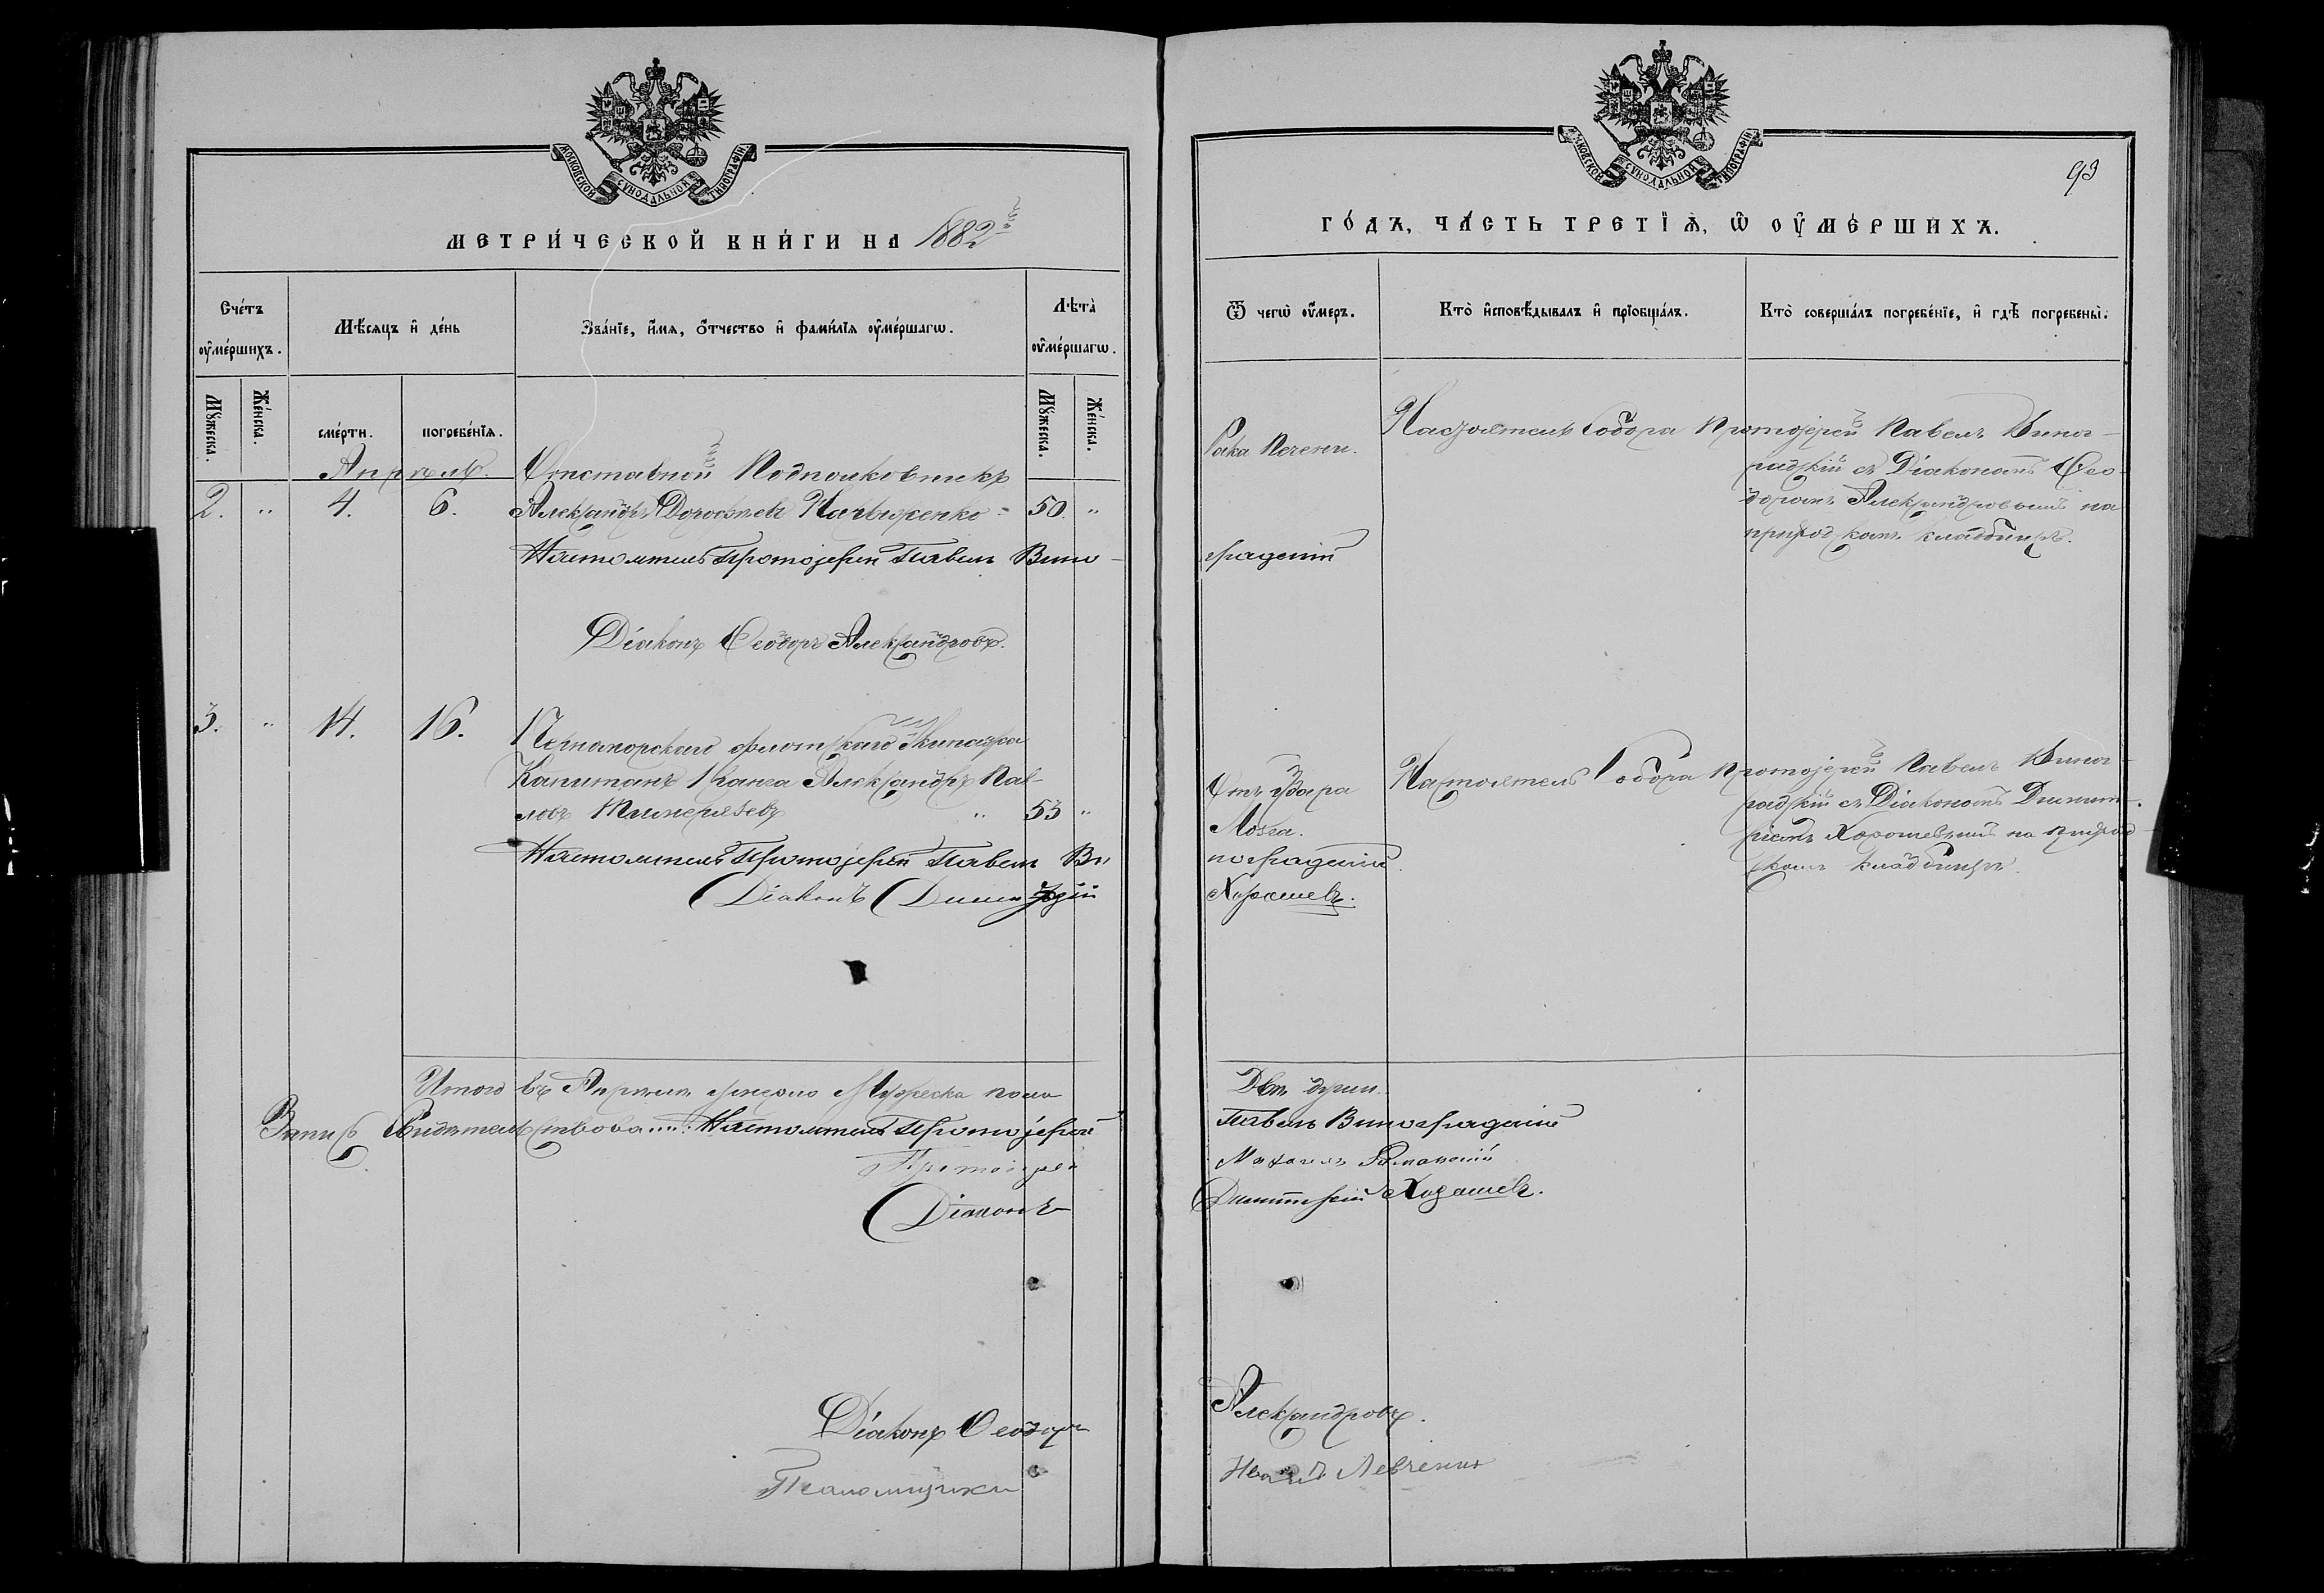 МОСКОВСКОЙ СУНОДАЛЬНОЙ ТИПОГРАФІИ
МЕТРИ́ЧЕСКОЙ КНИ́ГИ НА 1882й
Сче́тъ ᲂу҆ме́ршихъ.
Мѣ́сяцъ и҆ де́нь
Зва́нїе, и҆́мя, ѻ҆́тчество и҆ фами́лїя ᲂу҆ме́ршагѡ.
Лѣта̀ ᲂу҆ме́ршагѡ.
Мꙋ́жеска.
Же́нска.
сме́рти.
погребе́нїѧ.
Мꙋ́жеска.
Же́нска.
Апрѣль.
Отставной Подполковникъ
2. " 4. 6. Александръ Дорофѣевъ 50. "
Настоятель Протоіерей Павелъ Вино-
Діаконъ Ѳеодоръ Александровъ.
3. " 14. 16. Черноморскаго флотскаго Экипажа
Капитанъ 1 ранга Александръ Пав-
ловъ " 53 "
Настоятель Протоіерей Павелъ Ви
Діаконъ Димитрій
Итого въ Апрѣлѣ умерло Мужеска пола
Запись свидѣтельствовали: Настоятель Протоіерей
Протоіерей
Діаконъ
Діаконъ Ѳеодоръ
Псаломщикъ
МОСКОВСКОЙ СУНОДАЛЬНОЙ ТИПОГРАФІИ
93
ГО́ДЪ, ЧА́СТЬ ТРЕТЇѦ, Ѡ ОУ҆МЕ́РШИХЪ.
Ѿ чегѡ̀ ᲂу҆́меръ.
Кто̀ и҆сповѣ́дывалъ и҆ прїобща́лъ.
Кто̀ соверша́лъ погребе́нїе, и҆ гдѣ̀ погребены̀.
Рака печени.
Настоятель Собора Протоіерей Павелъ Виног-
радскій съ Діакономъ Ѳео-
доромъ Александровымъ на
приходскомъ кладбищѣ.
градскій
Отъ удара
Мозга.
Настоятель Собора Протоіерей Павелъ Виног-
радскій съ Діакономъ Димит-
ріемъ Хорошевымъ на приход-
скомъ кладбищѣ.
ноградскій
Хорошевъ.
Двѣ души.
Павелъ Виноградскій
Романскій
Димитрій Хорошевъ.
Александровъ.
Левченко